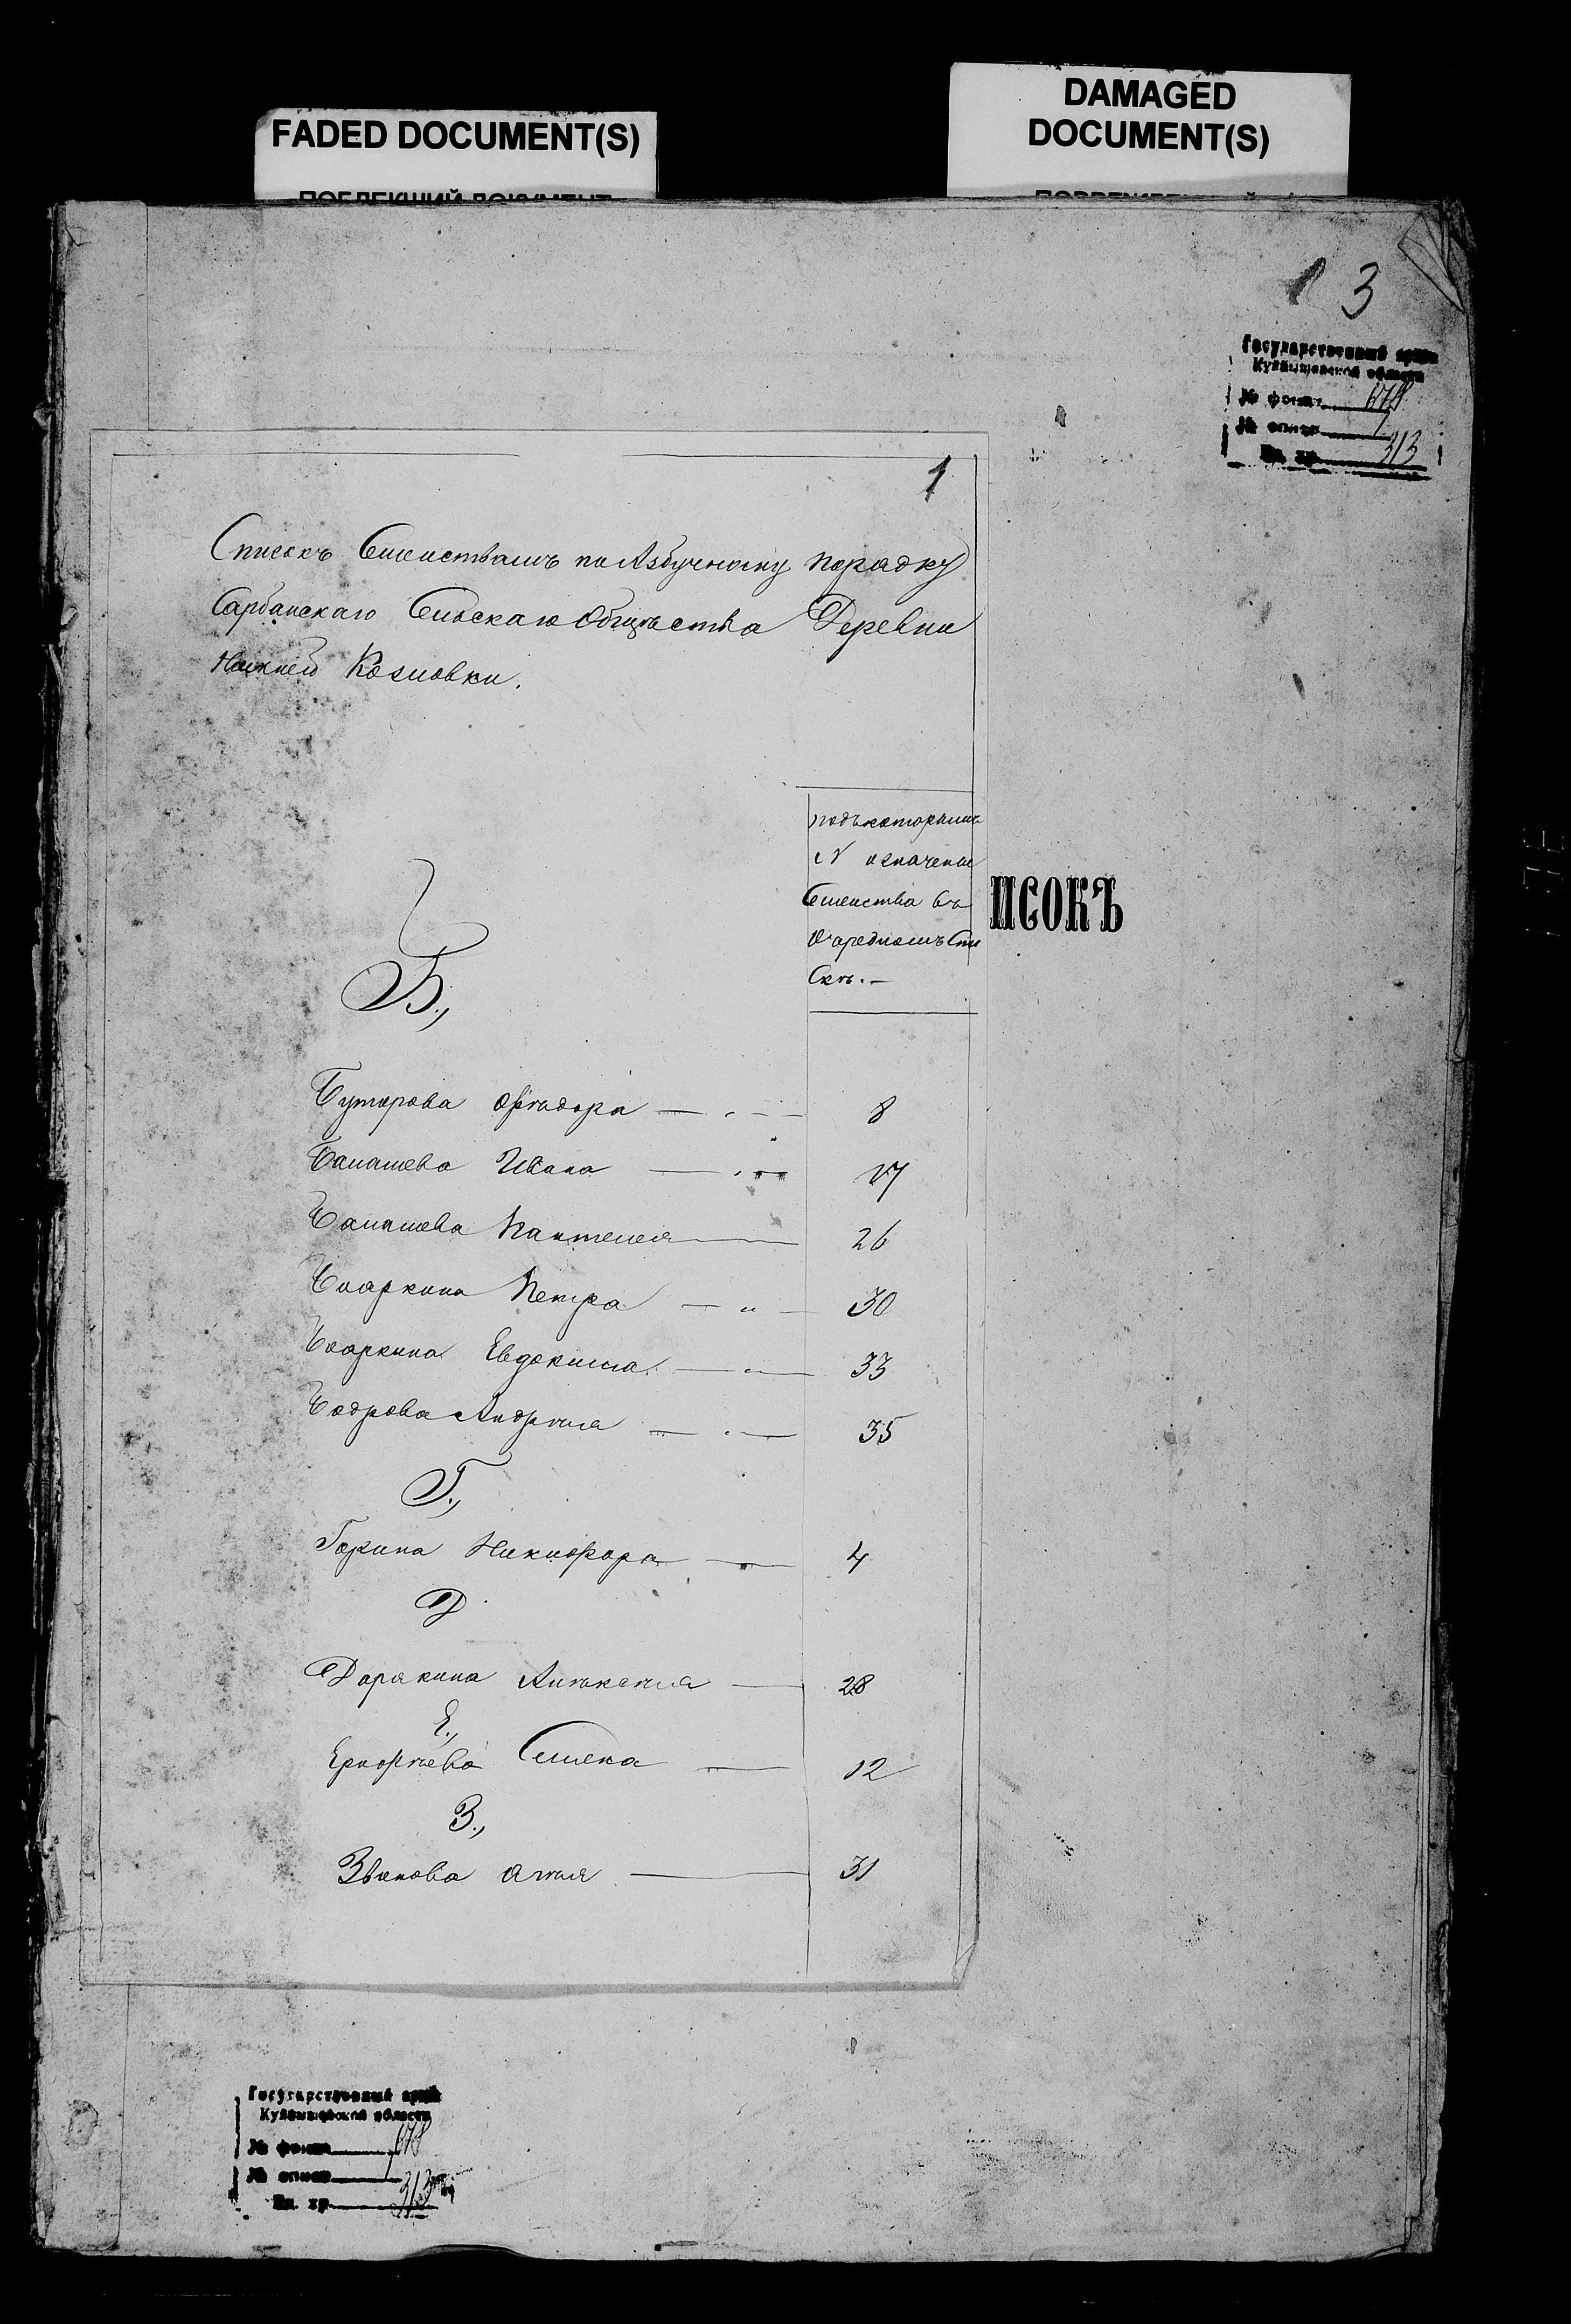 FADED DOCUMENT(S)
DAMAGED
DOCUMENT(S)
ПОБЛЕКШИЙ ДОКУМЕНТ
3
Государственный архив
Куйбышевской области
№ фонда 678
№ описи 7
Ед. хр. 313
1
Списокъ Семействамъ по Азбучному порядку
Сарбайскаго Сельскаго Общества Деревни
Нижней Козловки.
подъ которымъ
N означены
Семейства въ
Очередномъ Спи
скѣ.—
ИСОКЪ
Б.,
Бутырова Ѳедора — 8
Балашева Ивана — 17
Балашева Пантелея — 26
Бояркина Петра — 30
Бояркина Евдокима — 33
Бодрова Андрѣя — 35
Г.,
Горина Никифора — 4
Д
Дорякина Алѣксѣя — 28
Е.,
Ерофѣева Семена — 12
З.,
31
Государственный архив
Куйбышевской области
№ фонда 678
№ описи 7
Ед. хр. 313